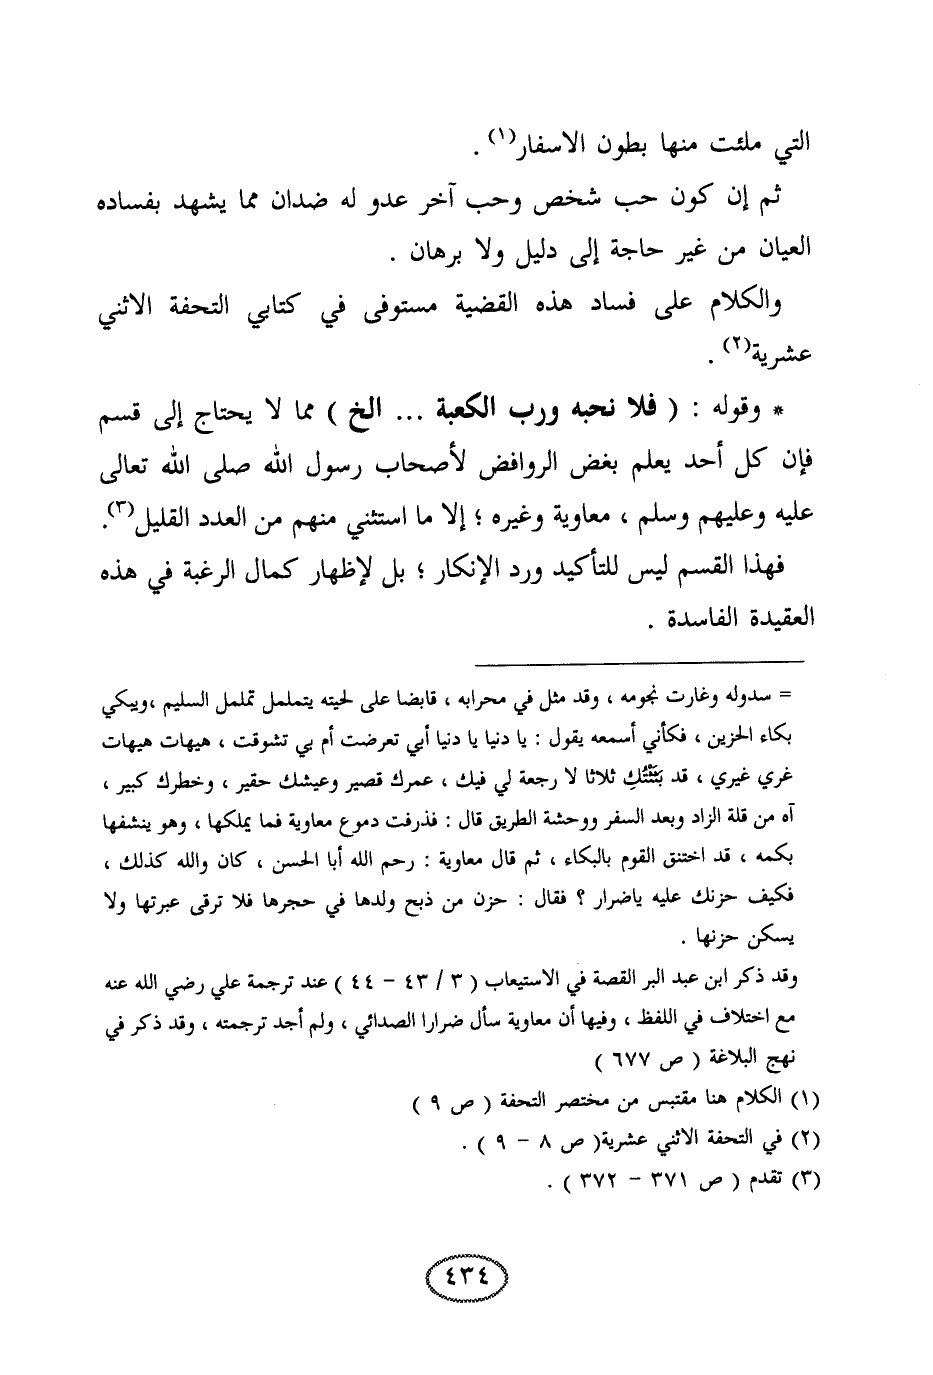 التي ملئت منها بطون الاسفار(١) .
ثم إن كون حب شخص وحب آخر عدو له ضدان مما يشهد بفساده
العيان من غير حاجة إلى دليل ولا برهان .
والكلام على فساد هذه القضية مستوفى في كتابي التحفة الاثني
عشرية(٢) .
* وقوله : ( فلا نحبه ورب الكعبة ... الخ ) مما لا يحتاج إلى قسم
فإن كل أحد يعلم بغض الروافض لأصحاب رسول الله صلى الله تعالى
عليه وعليهم وسلم ، معاوية وغيره ؛ إلا ما استثني منهم من العدد القليل(٣).
فهذا القسم ليس للتأكيد ورد الإنكار ؛ بل لإظهار كمال الرغبة في هذه
العقيدة الفاسدة .
= سدوله وغارت نجومه ، وقد مثل في محرابه ، قابضا على لحيته يتململ تململ السليم ،ويبكي
بكاء الحزين ، فكأني أسمعه يقول : يا دنيا يا دنيا أبي تعرضت أم بي تشوقت ، هيهات هيهات
غري غيري ، قد بَتَتْتُكِ ثلاثا لا رجعة لي فيك ، عمرك قصير وعيشك حقير ، وخطرك كبير ،
آه من قلة الزاد وبعد السفر ووحشة الطريق قال : فذرفت دموع معاوية فما يملكها ، وهو ينشفها
بكمه ، قد اختنق القوم بالبكاء ، ثم قال معاوية : رحم الله أبا الحسن ، كان والله كذلك ،
فكيف حزنك عليه ياضرار ؟ فقال : حزن من ذبح ولدها في حجرها فلا ترقى عبرتها ولا
يسكن حزنها .
وقد ذكر ابن عبد البر القصة في الاستيعاب ( ٣ / ٤٣ - ٤٤ ) عند ترجمة علي رضي الله عنه
مع اختلاف في اللفظ ، وفيها أن معاوية سأل ضرارا الصدائي ، ولم أجد ترجمته ، وقد ذكر في
نهج البلاغة ( ص ٦٧٧ )
(١) الكلام هنا مقتبس من مختصر التحفة ( ص ٩ )
(٢) في التحفة الاثني عشرية( ص ٨ - ٩ ) .
(٣) تقدم ( ص ٣٧١ - ٣٧٢ ) .
٤٣٤